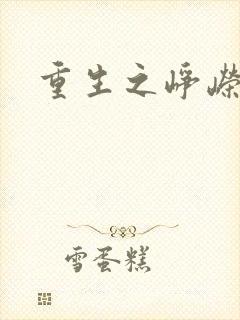 重生之峥嵘
雪蛋糕